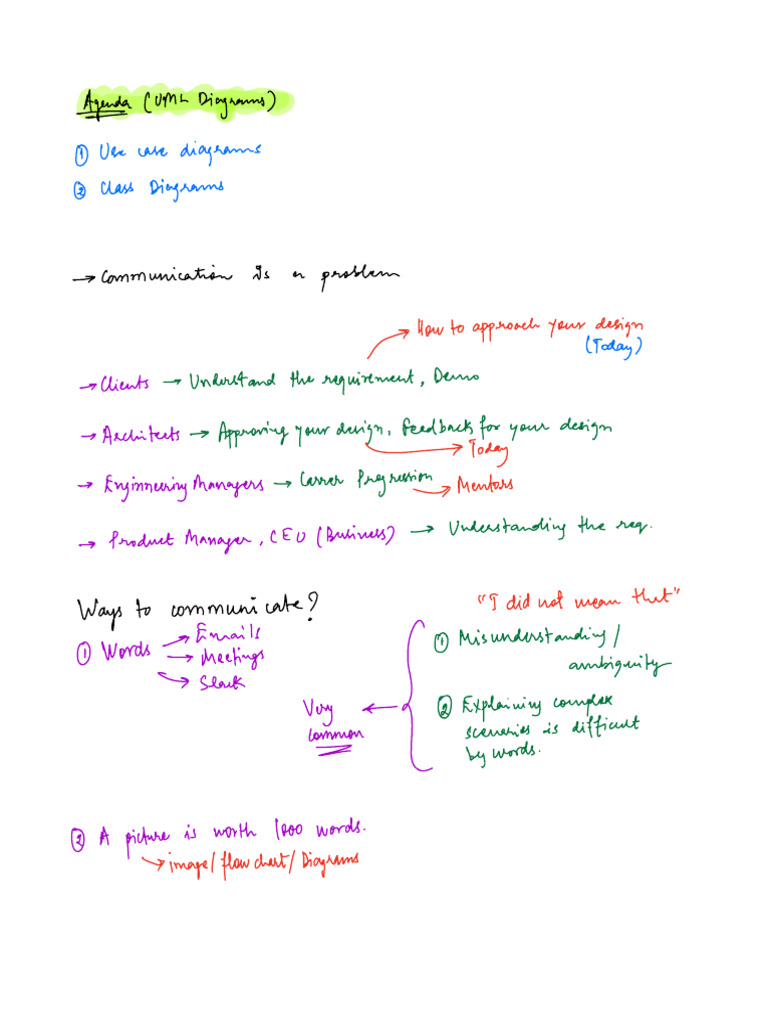 Agenda (UML Diagrams)
① Use case diagrams
② Class Diagrams
→ Communication is a problem
→ How to approach your design
(Today)
→ Clients → Understand the requirement, Demo
→ Architects → Approving your design, Feedback for your design
→ Today
→ Engineering Managers → Career Progression → Mentors
→ Product Manager, CEO (Business) → Understanding the req.
Ways to communicate?
① Words → Emails
→ Meetings
→ Slack
"I did not mean that"
① Misunderstanding/
ambiguity
② Explaining complex
scenarios is difficult
by words.
Very
common
② A picture is worth 1000 words.
→ image/flow chart/Diagrams